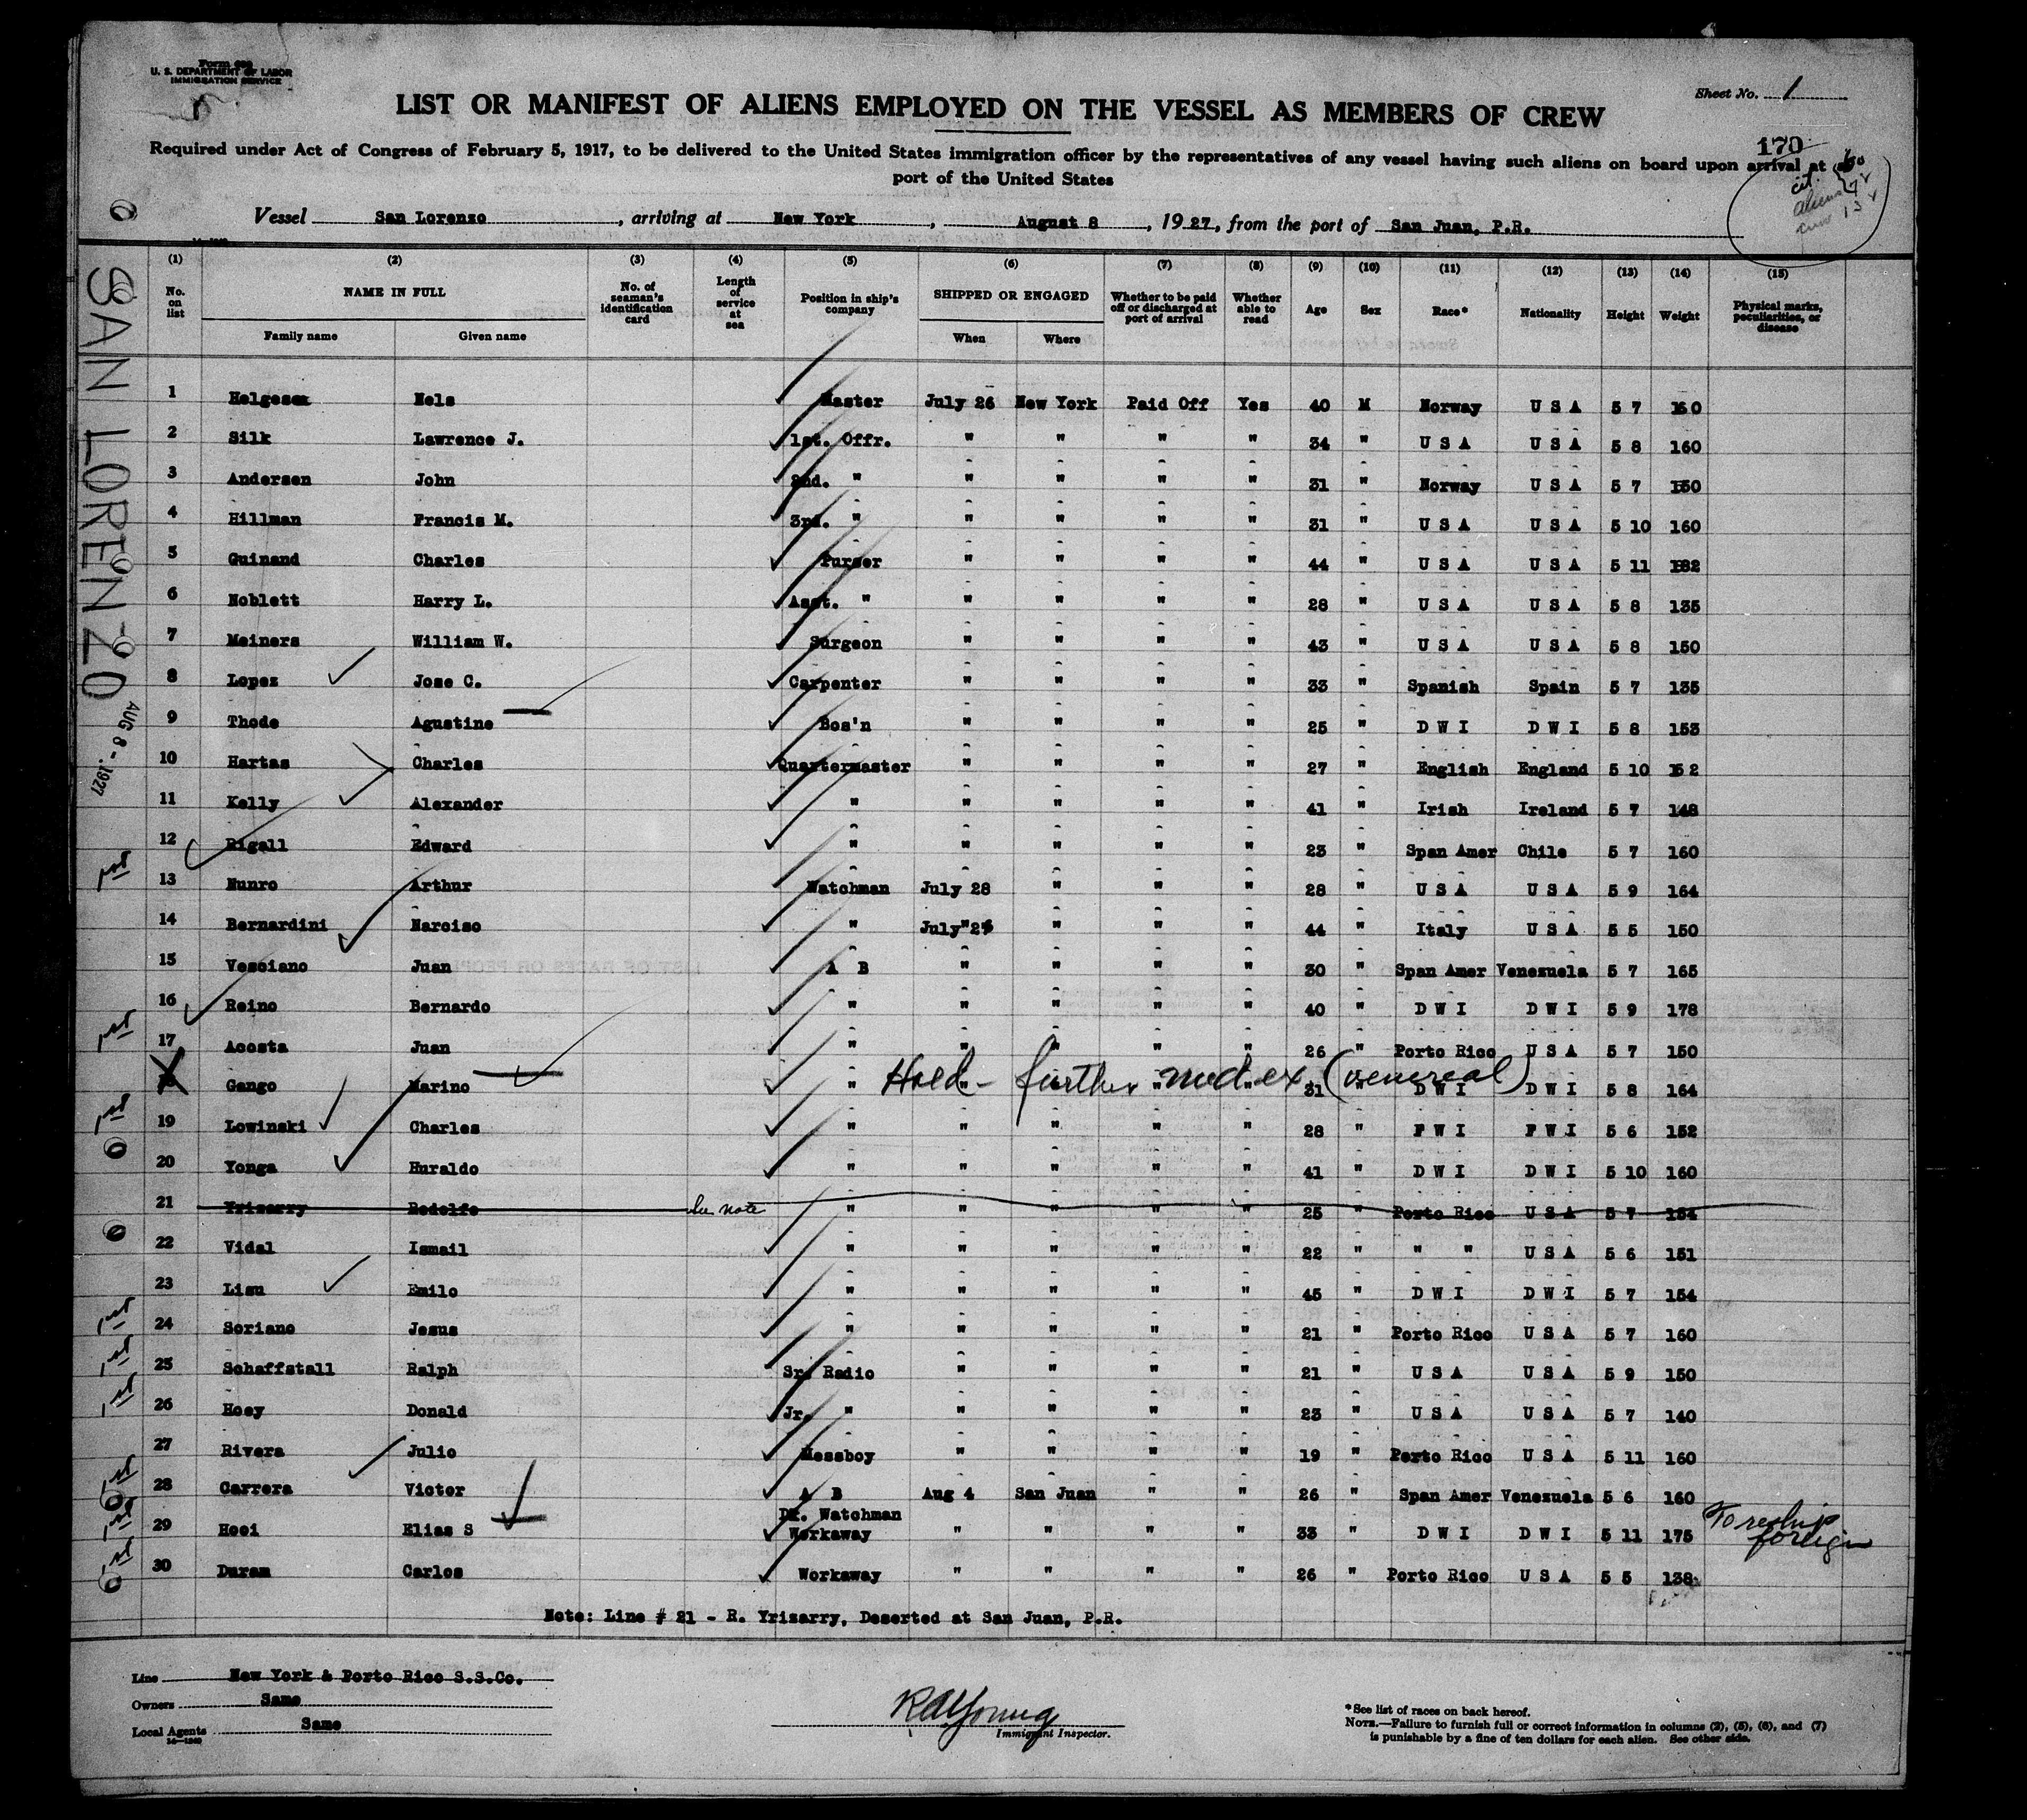 Form 689
U. S. DEPARTMENT OF LABOR
IMMIGRATION SERVICE
Sheet No. 1
LIST OR MANIFEST OF ALIENS EMPLOYED ON THE VESSEL AS MEMBERS OF CREW
170
Required under Act of Congress of February 5, 1917, to be delivered to the United States immigration officer by the representatives of any vessel having such aliens on board upon arrival at a
port of the United States
cit.
aliens
Vessel San Lorenzo, arriving at New York, August 8, 1927, from the port of San Juan, P.R.
SAN LORENZO
AUG 8 - 1927
(1) (2) (3) (4) (5) (6) (7) (8) (9) (10) (11) (12) (13) (14) (15)
No. on list NAME IN FULL No. of seaman's identification card Length of service at sea Position in ship's company SHIPPED OR ENGAGED Whether to be paid off or discharged at port of arrival Whether able to read Age Sex Race* Nationality Height Weight Physical marks, peculiarities, or disease
Family name Given name When Where
1 Helgesen Nels Master July 26 New York Paid Off Yes 40 M Norway U S A 5 7 160
2 Silk Lawrence J. 1st. Offr. " " " " 34 " U S A U S A 5 8 160
3 Andersen John 2nd. " " " " " 31 " Norway U S A 5 7 150
4 Hillman Francis M. 3rd. " " " " " 31 " U S A U S A 5 10 160
5 Guinand Charles Purser " " " " 44 " U S A U S A 5 11 182
6 Noblett Harry L. Asst. " " " " " 28 " U S A U S A 5 8 135
7 Meiners William W. Surgeon " " " " 43 " U S A U S A 5 8 150
8 Lopez Jose C. Carpenter " " " " 33 " Spanish Spain 5 7 135
9 Thode Agustine Bos'n " " " " 25 " D W I D W I 5 8 153
10 Hartas Charles Quartermaster " " " " 27 " English England 5 10 152
11 Kelly Alexander " " " " " 41 " Irish Ireland 5 7 148
12 Rigall Edward " " " " " 23 " Span Amer Chile 5 7 160
13 Munro Arthur Watchman July 28 " " " 28 " U S A U S A 5 9 164
14 Bernardini Narciso " July 26 " " " 44 " Italy U S A 5 5 150
15 Vesciano Juan A B " " " " 30 " Span Amer Venezuela 5 7 165
16 Reino Bernardo " " " " " 40 " D W I D W I 5 9 178
17 Acosta Juan " " " " " 26 " Porto Rico U S A 5 7 150
18 Gango Marino " " " " " 31 " D W I D W I 5 8 164
Hold - further med. ex. (venereal)
19 Lowinski Charles " " " " " 28 " F W I F W I 5 6 152
20 Yonga Huraldo " " " " " 41 " D W I D W I 5 10 160
21 Yrizarry Rodolfo See note " " " " " 25 " Porto Rico U S A 5 7 154
22 Vidal Ismail " " " " " 22 " " " U S A 5 6 151
23 Lisu Emilo " " " " " 45 " D W I D W I 5 7 154
24 Soriano Jesus " " " " " 21 " Porto Rico U S A 5 7 160
25 Schaffstall Ralph Sr. Radio " " " " 21 " U S A U S A 5 9 150
26 Hoey Donald Jr. " " " " " 23 " U S A U S A 5 7 140
27 Rivera Julio Messboy " " " " 19 " Porto Rico U S A 5 11 160
28 Carrera Victor A B Aug 4 San Juan " " 26 " Span Amer Venezuela 5 6 160
Dk. Watchman
29 Hooi Elias S Workaway " " " " 33 " D W I D W I 5 11 175 To reship foreign
30 Duran Carlos Workaway " " " " 26 " Porto Rico U S A 5 5 138
Note: Line # 21 - R. Yrizarry, Deserted at San Juan, P.R.
Line New York & Porto Rico S.S.Co.
Owners Same
Local Agents Same
14-1249
R A Young
Immigrant Inspector.
*See list of races on back hereof.
NOTE.—Failure to furnish full or correct information in columns (2), (5), (6), and (7)
is punishable by a fine of ten dollars for each alien. See other side.